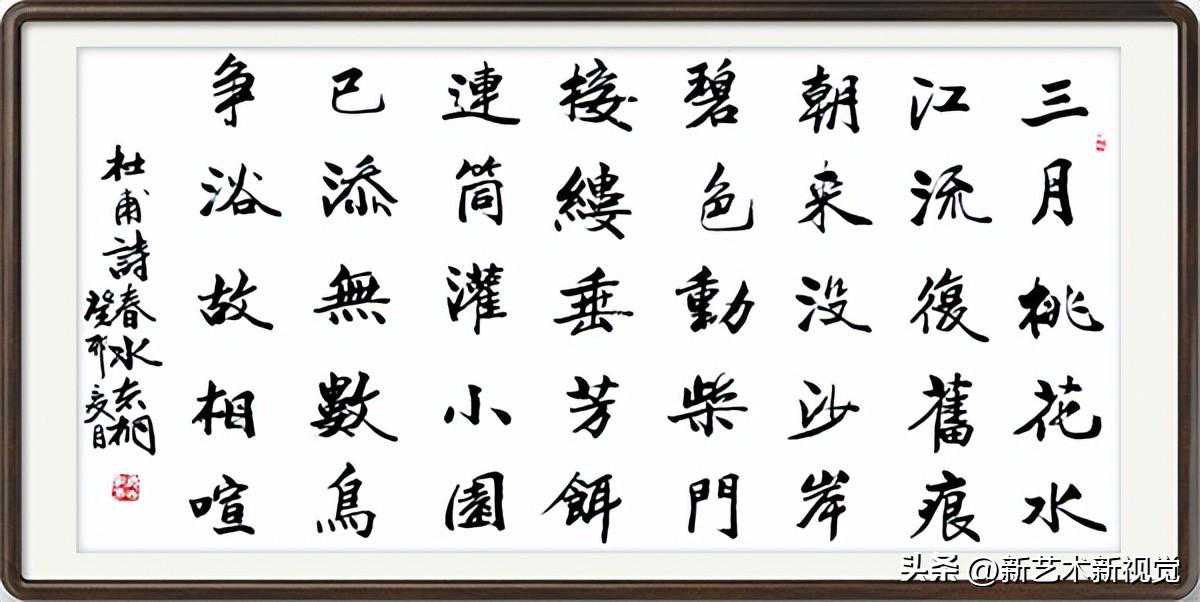 三月桃花水
江流復舊痕
朝来没沙岸
碧色動柴門
接縷垂芳餌
連筒灌小園
已添無數鳥
争浴故相喧
杜甫詩春水
癸卯
头条 @新艺术新视觉